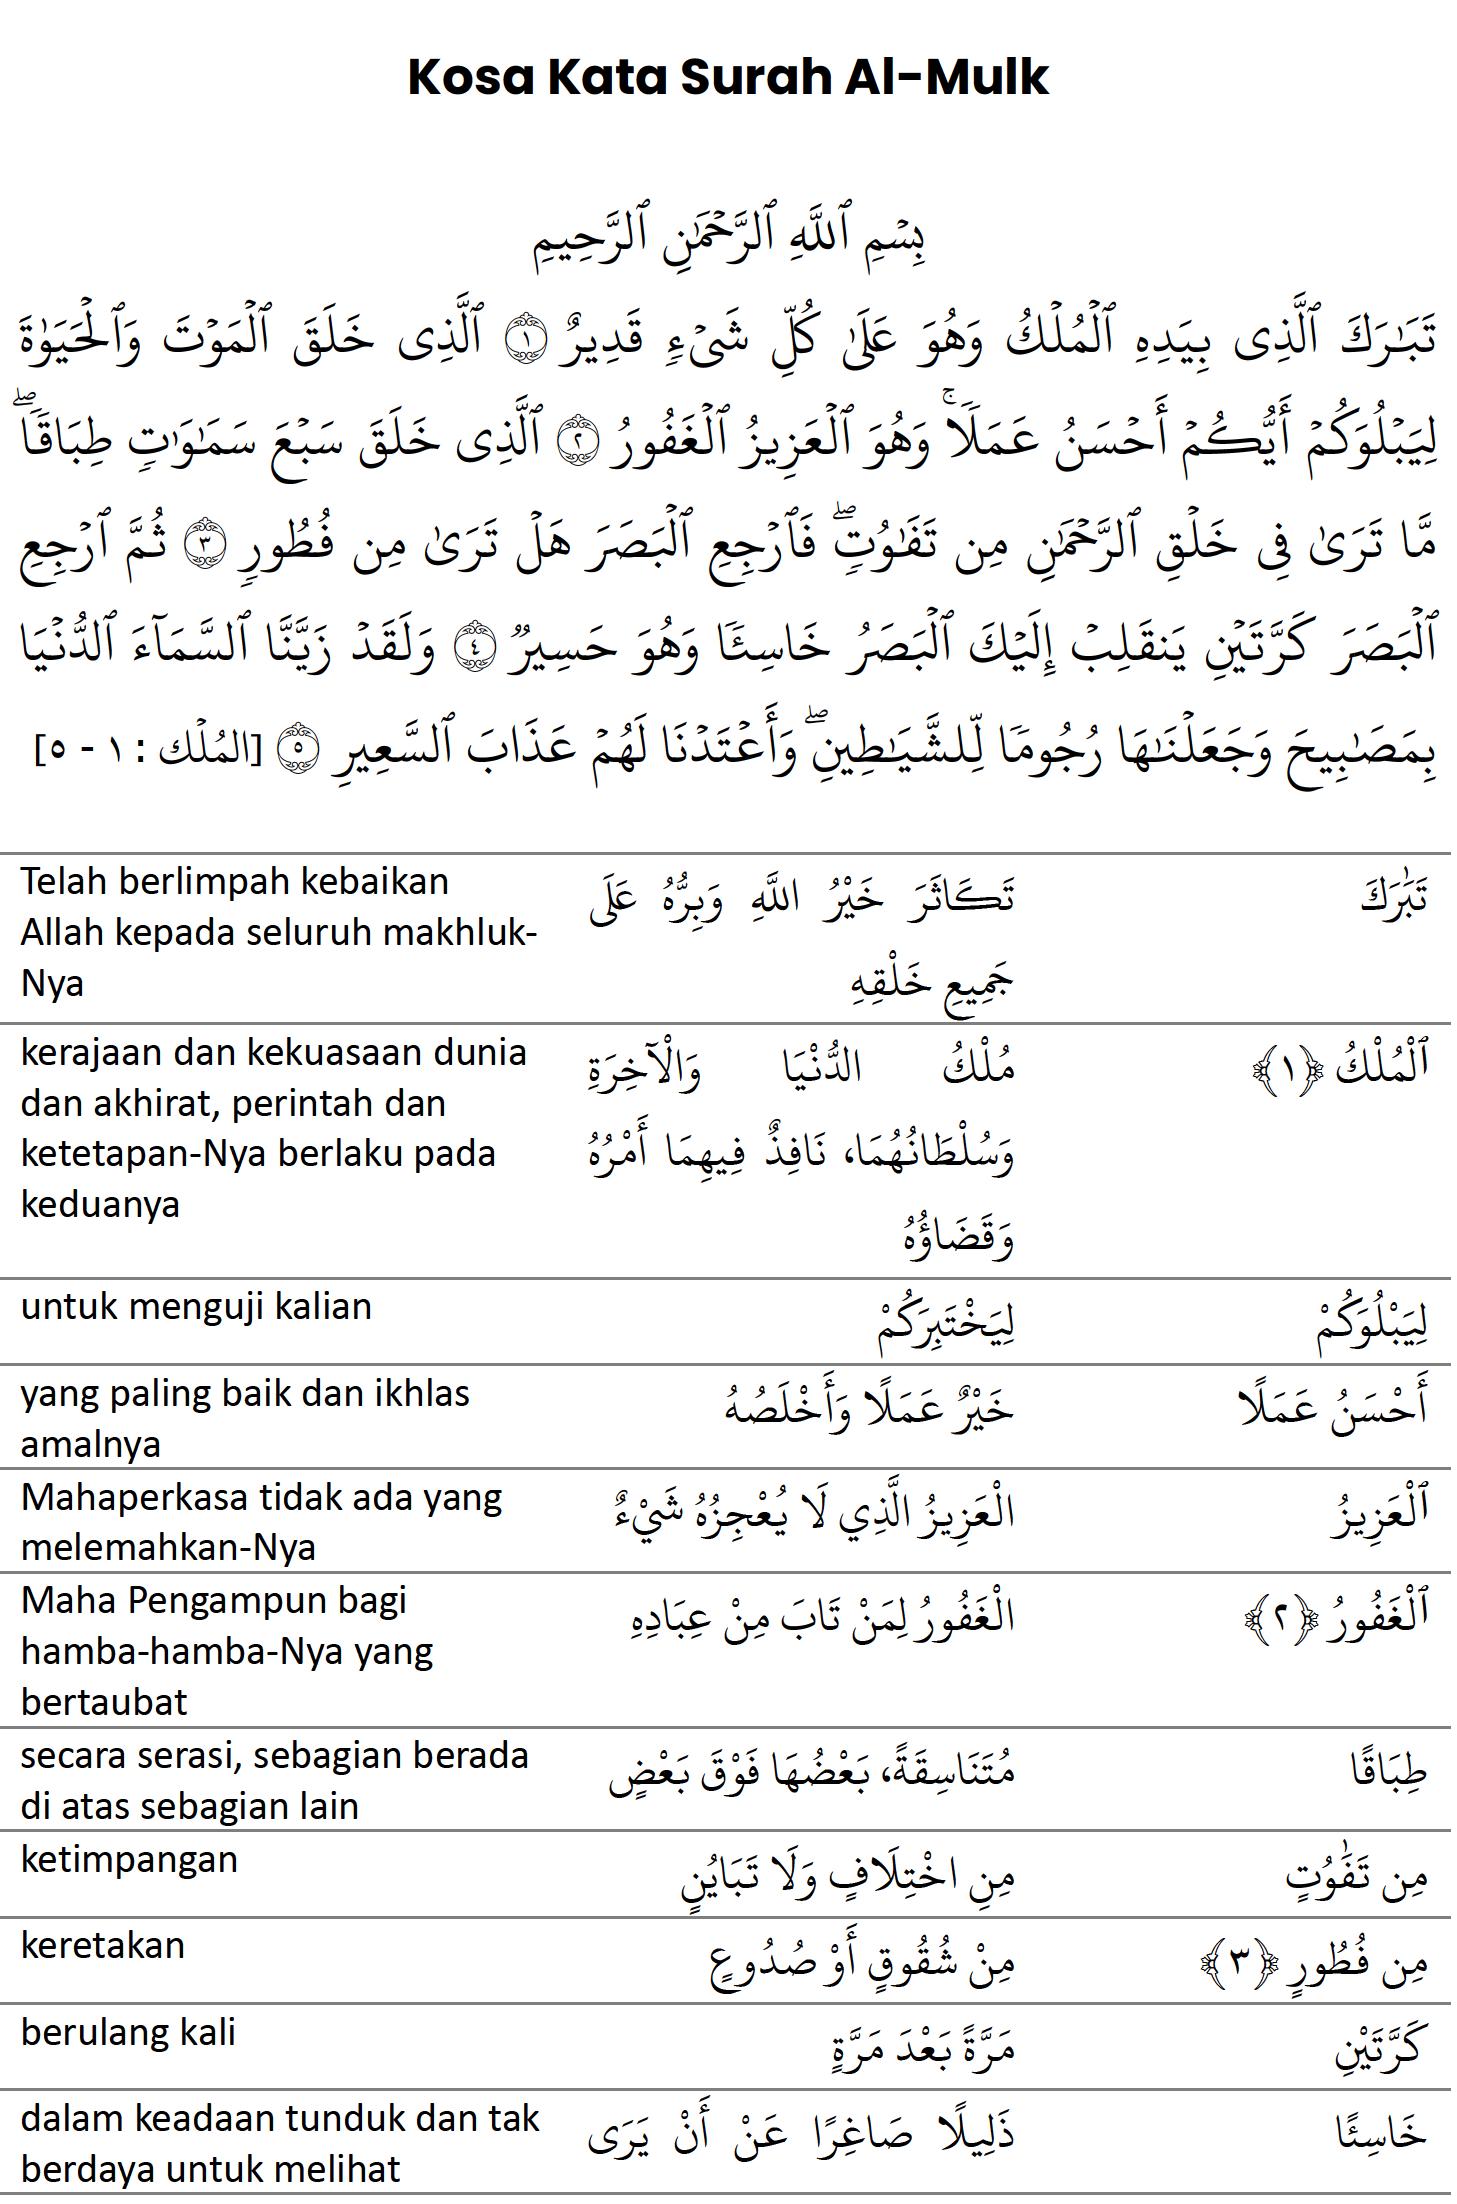 Kosa Kata Surah Al-Mulk
بِسۡمِ ٱللَّهِ ٱلرَّحۡمَٰنِ ٱلرَّحِيمِ
تَبَٰرَكَ ٱلَّذِي بِيَدِهِ ٱلۡمُلۡكُ وَهُوَ عَلَىٰ كُلِّ شَيۡءٖ قَدِيرٌ ١ ٱلَّذِي خَلَقَ ٱلۡمَوۡتَ وَٱلۡحَيَوٰةَ
لِيَبۡلُوَكُمۡ أَيُّكُمۡ أَحۡسَنُ عَمَلٗاۚ وَهُوَ ٱلۡعَزِيزُ ٱلۡغَفُورُ ٢ ٱلَّذِي خَلَقَ سَبۡعَ سَمَٰوَٰتٖ طِبَاقٗاۖ
مَّا تَرَىٰ فِي خَلۡقِ ٱلرَّحۡمَٰنِ مِن تَفَٰوُتٖۖ فَٱرۡجِعِ ٱلۡبَصَرَ هَلۡ تَرَىٰ مِن فُطُورٖ ٣ ثُمَّ ٱرۡجِعِ
ٱلۡبَصَرَ كَرَّتَيۡنِ يَنقَلِبۡ إِلَيۡكَ ٱلۡبَصَرُ خَاسِئٗا وَهُوَ حَسِيرٞ ٤ وَلَقَدۡ زَيَّنَّا ٱلسَّمَآءَ ٱلدُّنۡيَا
بِمَصَٰبِيحَ وَجَعَلۡنَٰهَا رُجُومٗا لِّلشَّيَٰطِينِۖ وَأَعۡتَدۡنَا لَهُمۡ عَذَابَ ٱلسَّعِيرِ ٥ [المُلۡك : ١ - ٥]
تَبَٰرَكَ
تَكَاثَرَ خَيْرُ اللَّهِ وَبِرُّهُ عَلَى
جَمِيعِ خَلْقِهِ
Telah berlimpah kebaikan
Allah kepada seluruh makhluk-
Nya
ٱلْمُلْكُ ﴿١﴾
مُلْكُ الدُّنْيَا وَالْآخِرَةِ
وَسُلْطَانُهُمَا، نَافِذٌ فِيهِمَا أَمْرُهُ
وَقَضَاؤُهُ
kerajaan dan kekuasaan dunia
dan akhirat, perintah dan
ketetapan-Nya berlaku pada
keduanya
لِيَبْلُوَكُمْ
لِيَخْتَبِرَكُمْ
untuk menguji kalian
أَحْسَنُ عَمَلًا
خَيْرٌ عَمَلًا وَأَخْلَصُهُ
yang paling baik dan ikhlas
amalnya
ٱلْعَزِيزُ
الْعَزِيزُ الَّذِي لَا يُعْجِزُهُ شَيْءٌ
Mahaperkasa tidak ada yang
melemahkan-Nya
ٱلْغَفُورُ ﴿٢﴾
الْغَفُورُ لِمَنْ تَابَ مِنْ عِبَادِهِ
Maha Pengampun bagi
hamba-hamba-Nya yang
bertaubat
طِبَاقًا
مُتَنَاسِقَةً، بَعْضُهَا فَوْقَ بَعْضٍ
secara serasi, sebagian berada
di atas sebagian lain
مِن تَفَٰوُتٍ
مِنِ اخْتِلَافٍ وَلَا تَبَايُنٍ
ketimpangan
مِن فُطُورٍ ﴿٣﴾
مِنْ شُقُوقٍ أَوْ صُدُوعٍ
keretakan
كَرَّتَيْنِ
مَرَّةً بَعْدَ مَرَّةٍ
berulang kali
خَاسِئًا
ذَلِيلًا صَاغِرًا عَنْ أَنْ يَرَى
dalam keadaan tunduk dan tak
berdaya untuk melihat